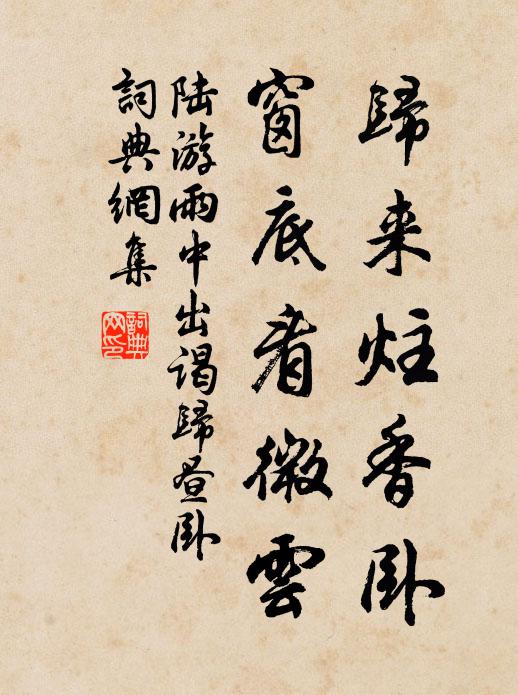 歸来炷香卧
窗底看微雲
陆游雨中出谒歸昼卧
詞典網集
詞典網印